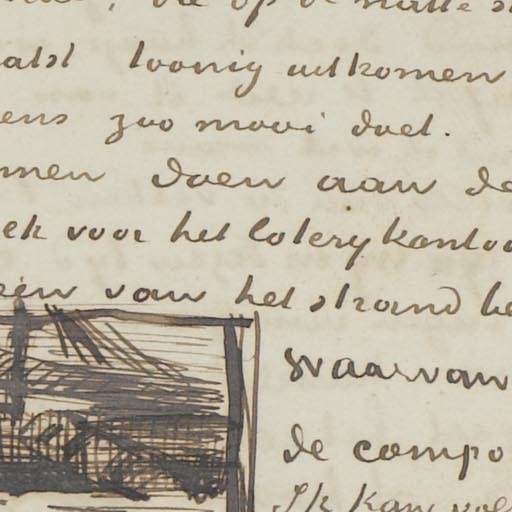 die op de natte st
toonig uitkomen
ens zoo mooi doet.
men doen aan de
ek voor het loterijkantoo
een van het strand he
waarvan
de compo
Ik kan vol